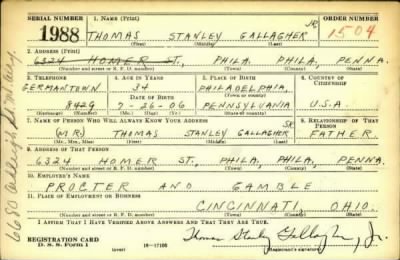 SERIAL NUMBER 1. NAME (Print) ORDER NUMBER
1988 THOMAS STANLEY GALLAGHER JR 1504
(First) (Middle) (Last)
2. ADDRESS (Print)
6324 HOMER ST., PHILA. PHILA, PENNA.
(Number and street or R. F. D. number) (Town) (County) (State)
3. TELEPHONE 4. AGE IN YEARS 5. PLACE OF BIRTH 6. COUNTRY OF CITIZENSHIP
GERMANTOWN 34 PHILADELPHIA
(Town or county)
8429 7-26-06 PENNSYLVANIA U.S.A.
7. NAME OF PERSON WHO WILL ALWAYS KNOW YOUR ADDRESS 8. RELATIONSHIP OF THAT PERSON
(MR) THOMAS STANLEY GALLAGHER SR FATHER.
(Mr., Mrs., Miss) (First) (Middle) (Last)
9. ADDRESS OF THAT PERSON
6324 HOMER ST., PHILA, PHILA, PENNA.
(Number and street or R. F. D. number) (Town) (County) (State)
10. EMPLOYER'S NAME
PROCTER AND GAMBLE
11. PLACE OF EMPLOYMENT OR BUSINESS
CINCINNATI, OHIO.
(Number and street or R. F. D. number) (Town) (County) (State)
I AFFIRM THAT I HAVE VERIFIED ABOVE ANSWERS AND THAT THEY ARE TRUE.
REGISTRATION CARD
D. S. S. Form 1 (over) 16-17105 Thomas Stanley Gallagher, Jr.
(Registrant's signature)
6680